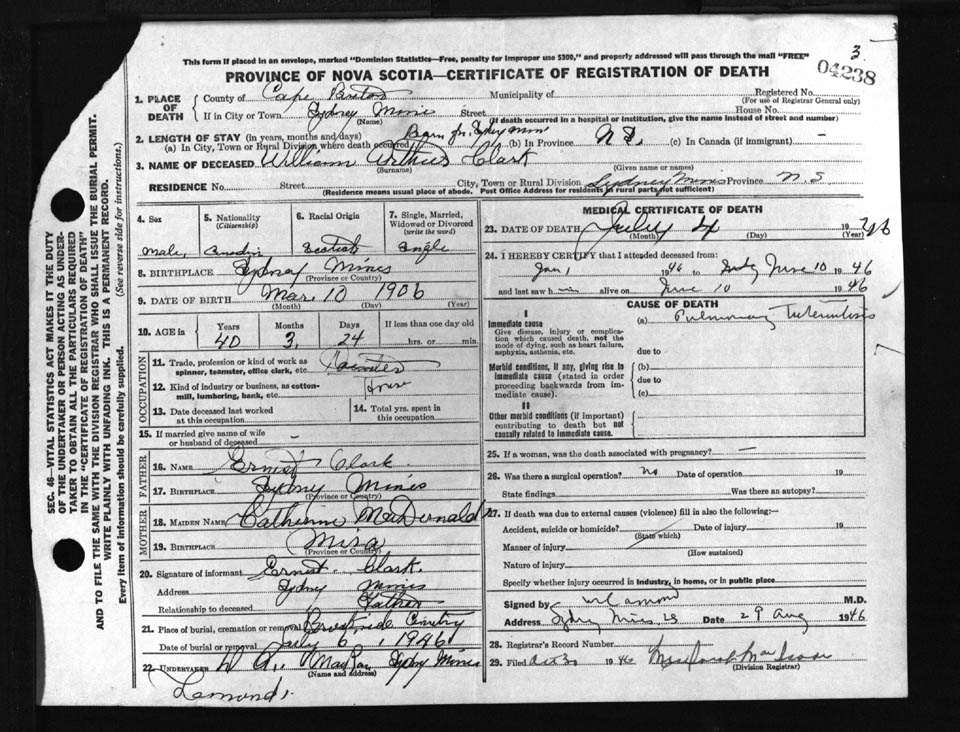 This form if placed in an envelope, marked "Dominion Statistics—Free, penalty for improper use $300," and properly addressed will pass through the mail "FREE"
3.
04238
PROVINCE OF NOVA SCOTIA—CERTIFICATE OF REGISTRATION OF DEATH
SEC. 46—VITAL STATISTICS ACT MAKES IT THE DUTY
OF THE UNDERTAKER OR PERSON ACTING AS UNDER-
TAKER TO OBTAIN ALL THE PARTICULARS REQUIRED
IN THE "CERTIFICATE OF REGISTRATION OF DEATH"
AND TO FILE THE SAME WITH THE DIVISION REGISTRAR WHO SHALL ISSUE THE BURIAL PERMIT.
WRITE PLAINLY WITH UNFADING INK. THIS IS A PERMANENT RECORD.
Every item of information should be carefully supplied. (See reverse side for instructions.)
1. PLACE OF DEATH
County of Cape Breton Municipality of Registered No.
(For use of Registrar General only)
If in City or Town Sydney Mines Street House No.
(Name) (If death occurred in a hospital or institution, give the name instead of street and number)
2. LENGTH OF STAY (in years, months and days)
(a) In City, Town or Rural Division where death occurred Born in Sydney Mines (b) In Province N.S. (c) In Canada (if immigrant)
3. NAME OF DECEASED William Arthur Clark
(Surname) (Given name or names)
RESIDENCE No. Street City, Town or Rural Division Sydney Mines Province N.S
(Residence means usual place of abode. Post Office Address for residents in rural parts not sufficient)
4. Sex
5. Nationality (Citizenship)
6. Racial Origin
7. Single, Married, Widowed or Divorced (write the word)
Male Canadian Scotish Single
8. BIRTHPLACE Sydney Mines
(Province or Country)
9. DATE OF BIRTH Mar. 10 1906
(Month) (Day) (Year)
10. AGE in Years Months Days If less than one day old
40 3 24 hrs. or min.
OCCUPATION
11. Trade, profession or kind of work as spinner, teamster, office clerk, etc. Painter
12. Kind of industry or business, as cotton-mill, lumbering, bank, etc. House
13. Date deceased last worked at this occupation
14. Total yrs. spent in this occupation
15. If married give name of wife or husband of deceased —
FATHER
16. NAME Ernest Clark
17. BIRTHPLACE Sydney Mines
(Province or Country)
MOTHER
18. MAIDEN NAME Catherine MacDonald
19. BIRTHPLACE Mira
(Province or Country)
20. Signature of informant Ernest Clark.
Address Sydney Mines
Relationship to deceased Father
21. Place of burial, cremation or removal Brookside
Date of burial or removal July 6, 1946
22. UNDERTAKER Sydney Mines
(Name and address)
MEDICAL CERTIFICATE OF DEATH
23. DATE OF DEATH July 4 1946
(Month) (Day) (Year)
24. I HEREBY CERTIFY that I attended deceased from:
Jan 1 1946 to June 10 1946
and last saw him alive on June 10 1946
CAUSE OF DEATH
I
Immediate cause
Give disease, injury or complication which caused death, not the mode of dying, such as heart failure, asphyxia, asthenia, etc.
(a) Pulmonary Tuberculosis
due to
Morbid conditions, if any, giving rise to immediate cause (stated in order proceeding backwards from immediate cause).
(b)
due to
(c)
II
Other morbid conditions (if important) contributing to death but not causally related to immediate cause.
25. If a woman, was the death associated with pregnancy? —
26. Was there a surgical operation? No Date of operation 19
State findings Was there an autopsy?
27. If death was due to external causes (violence) fill in also the following:—
Accident, suicide or homicide? Date of injury 19
(State which)
Manner of injury
(How sustained)
Nature of injury
Specify whether injury occurred in industry, in home, or in public place
Signed by M.D.
Address Sydney Mines Date 29 Aug 1946
28. Registrar's Record Number
29. Filed Oct 30 1946
(Division Registrar)